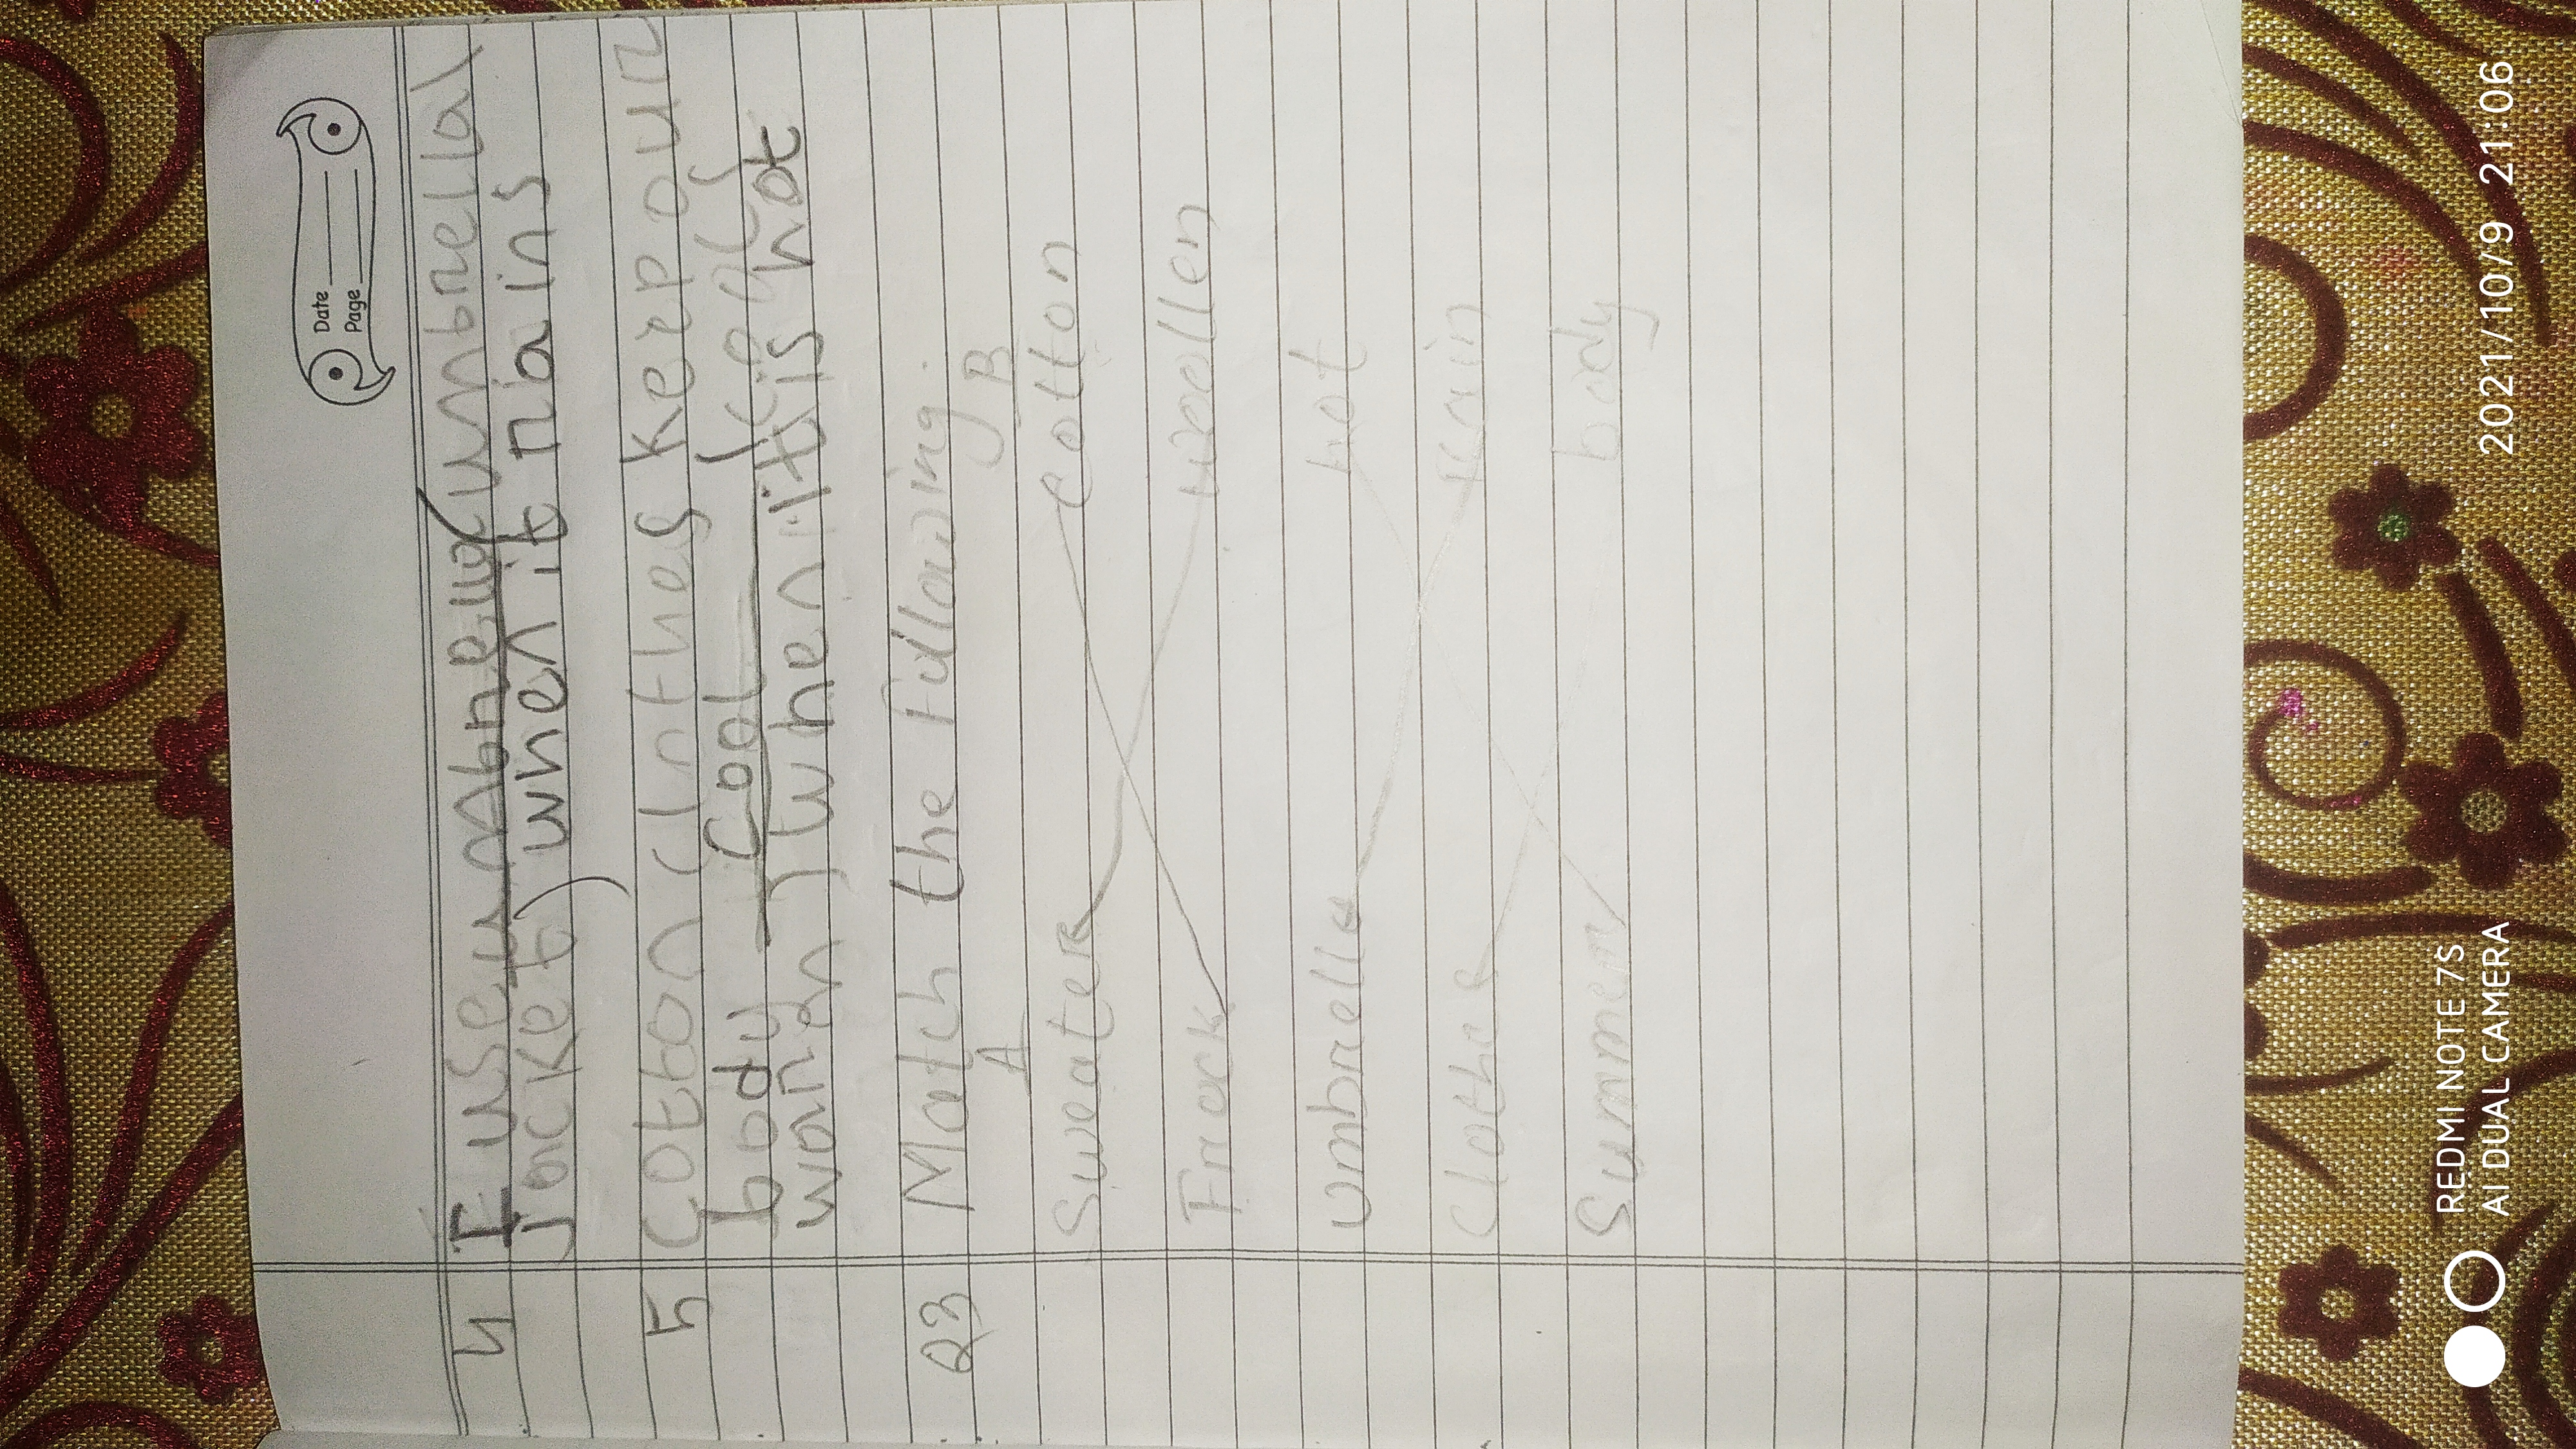 Date
Page
4 I use umbrella (umbrella/
jacket) when it rains
5 Cotton clothes keep our
body cool (cool/
warm) when it is hot
Q3 Match the Following.
A B
Sweater Cotton
Frock woollen
umbrella hot
Clothes rain
Summer body
REDMI NOTE 7S
AI DUAL CAMERA
2021/10/9 21:06